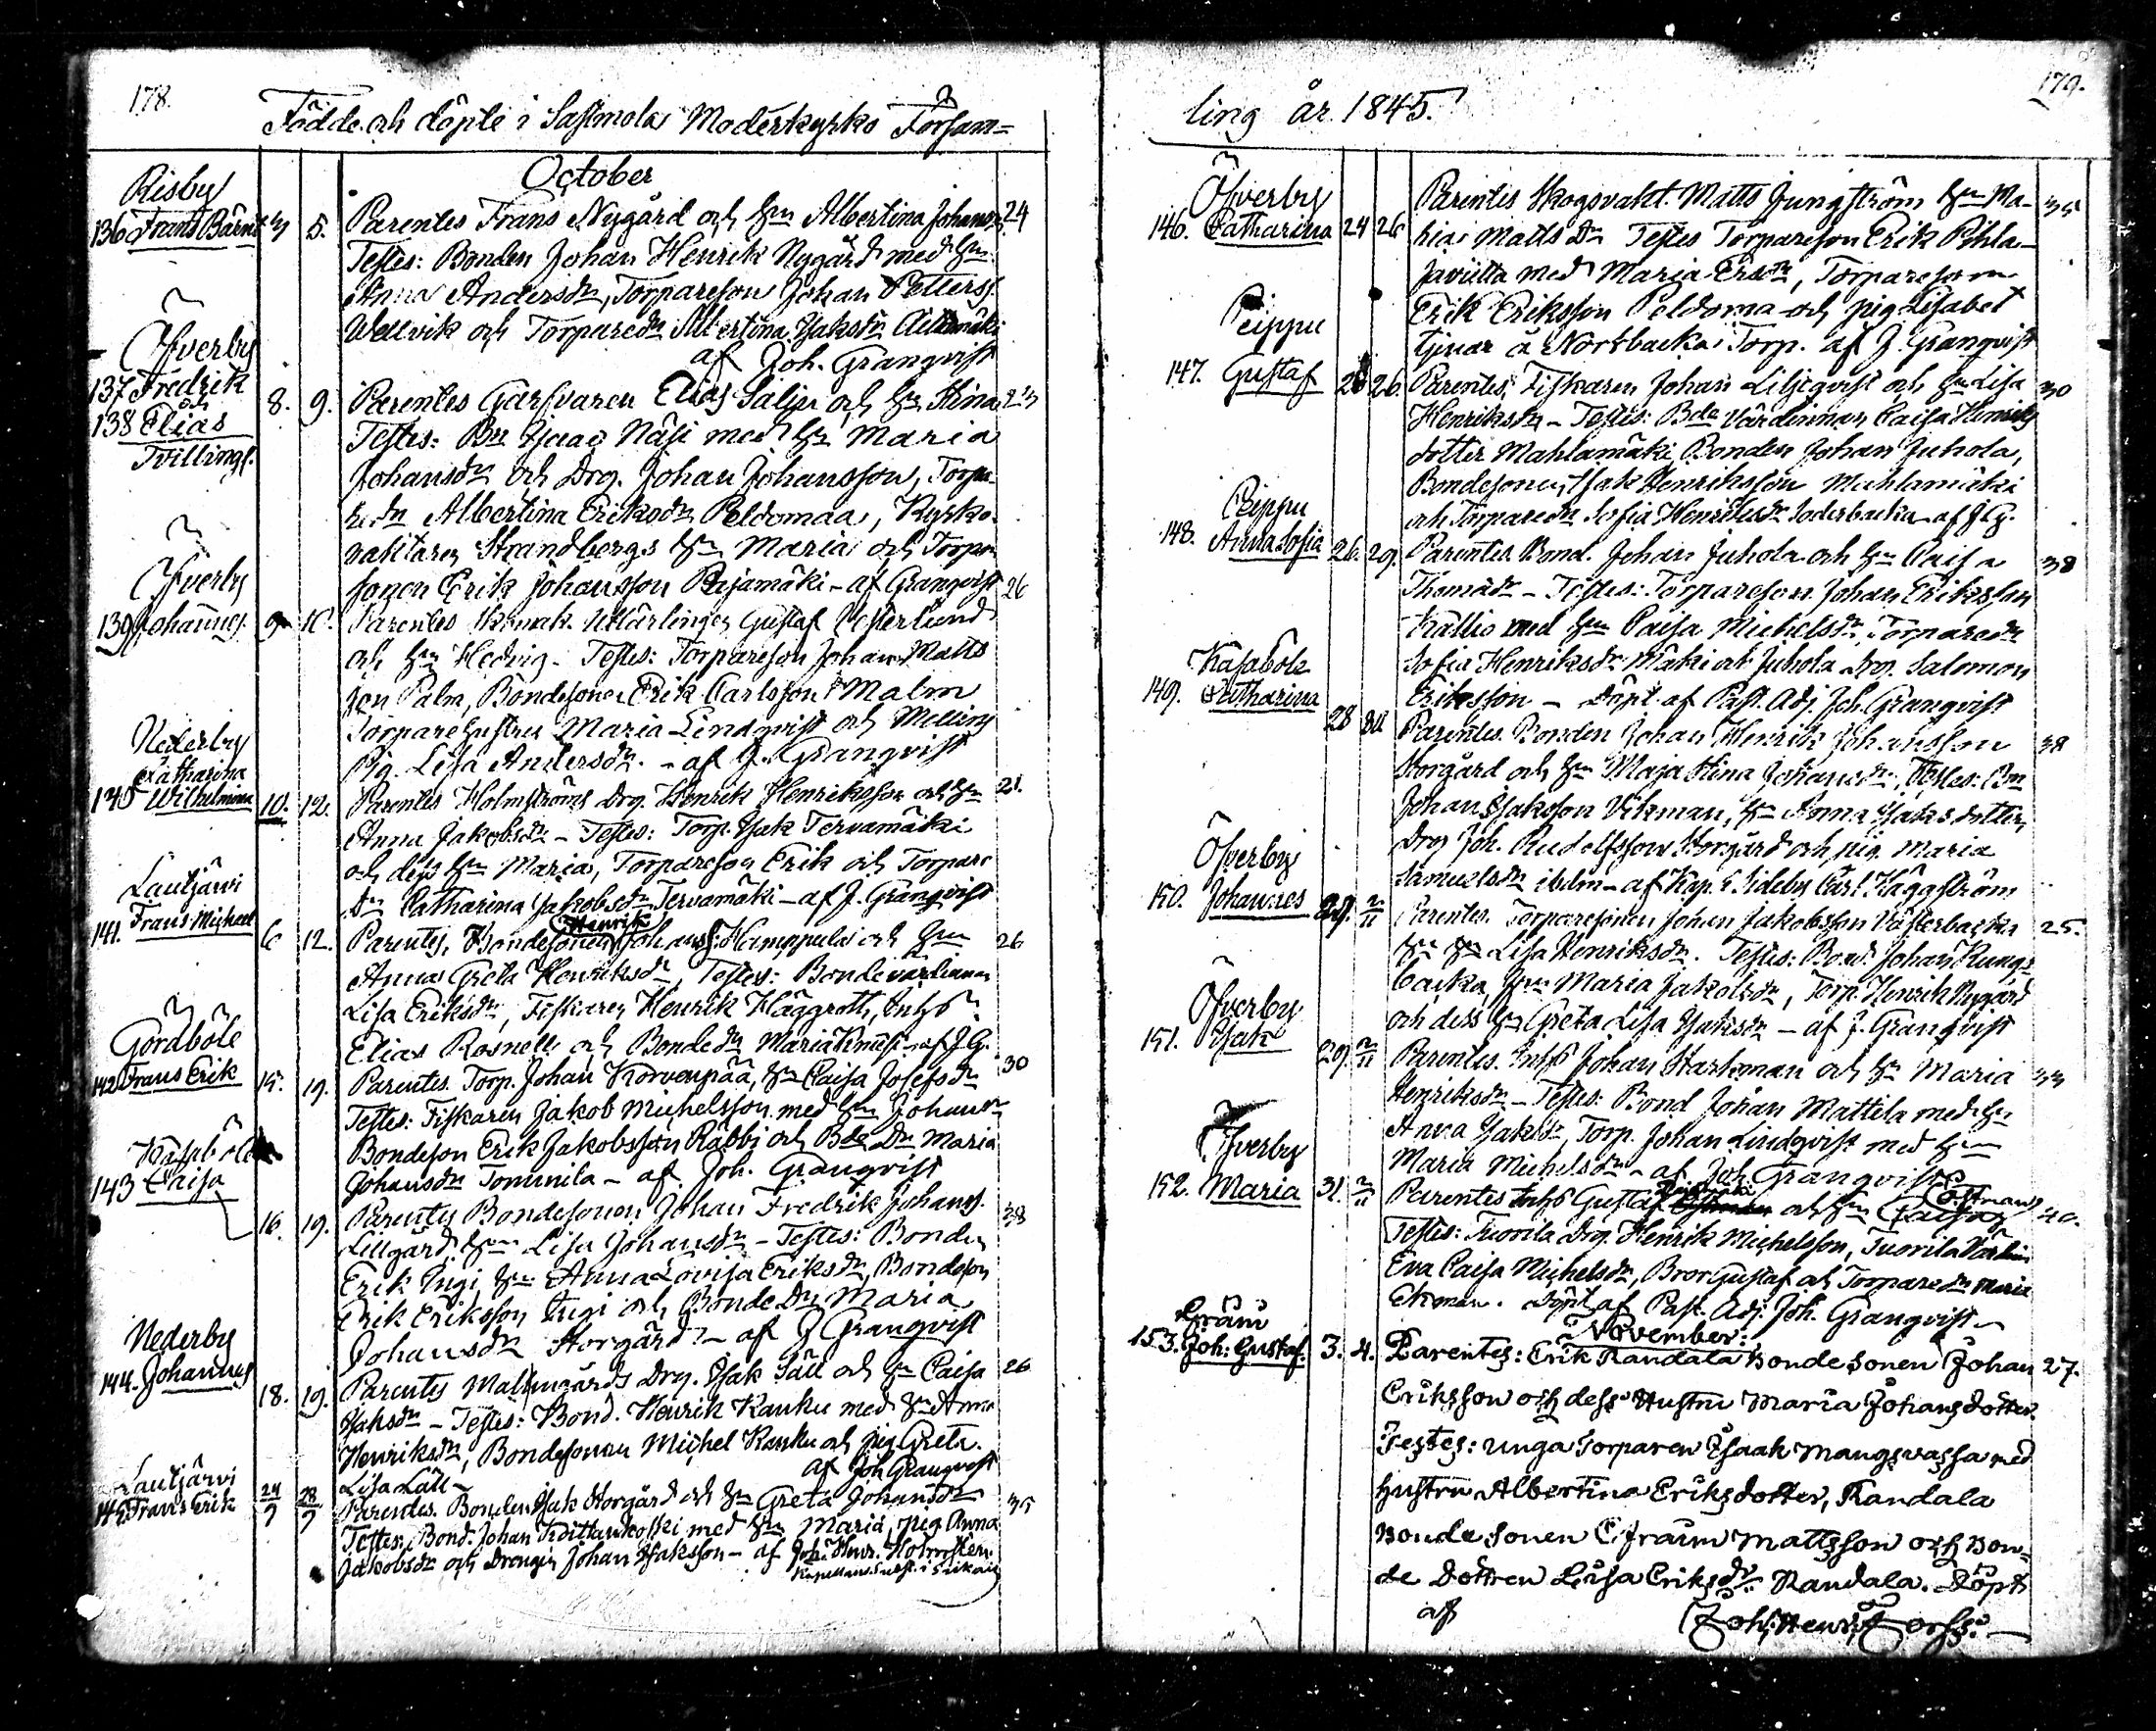 178.
Födde och döpte i Sastmola Moderkyrko Försam=
October
Risby
136 Frans Bärnt 3 5. Parentes Frans Nygård och Hu Albertina Johansd. 24
Testes: Bonden Johan Henrik Nygård med Hu
Anna Andersdr, Torpareson Johan Petterss.
Wellvik och Torparedr Albertina Isaksdr
af Joh. Granqvist
Öfverby
137 Fredrik
och
138 Elias
Tvillingl.
8. 9. Parentes Garfvaren Elias Salin och Hu Stina 23
Testes: Isaac Näsi med Hu Maria
Johansdr och Drg. Johan Johansson, Torpa-
redr Albertina Eriksdr Peldomaa, Kyrko-
vaktaren Strandbergs Hu Maria och Torpare
sonen Erik Johansson Reijamäki - af Granqvist
Öfverby
139 Johannes 9 10. Parentes Skomak. Mlärlingen Gustaf Vesterlund 26
och Hu Hedvig. Testes: Torpareson Johan Matts
son Palm, Bondesonen Erik Carlsson Malm
Torparehustrun Maria Lindqvist och
Pig. Lisa Andersdr. - af J. Granqvist
Nederby
Catharina
140 Wilhelmina 10. 12. Parentes Holmströms Drg. Henrik Henriksson och Hu 21.
Anna Jakobsdr - Testes: Torp. Isak Tervamäki
och dess Hu Maria, Torpareson Erik och Torpare
Dr Catharina Jakobsdr Tervamäki - af J. Granqvist
Lautjärvi
141. Frans Michael 6 12. Parentes, Bondesonen Johan Henrik Kamppula och Hu 26
Anna Greta Henriksdr, Testes: Bondevärdinnan
Lisa Eriksdr, Fiskaren Henrik Häggroth, Inhs
Elias Rosnell och Bondedr Maria - af J. G.
Gårdböle
142 Frans Erik 15. 19. Parentes. Torp. Johan Korvenpää, Hu Caisa Josefsdr 30
Testes: Fiskaren Jakob Michelsson med Hu Johansdr
Bondeson Erik Jakobsson Rabbi och Bde Dr Maria
Johansdr Tommila - af Joh. Granqvist
Kasaböle
143 Caisa 16. 19. Parentes Bondesonen Johan Fredrik Johanss. 38
Lillgård, Hu Lisa Johansdr - Testes: Bonden
Erik Ingi, Hu Anna Lovisa Eriksdr, Bondeson
Erik Eriksson Ingi och Bonde Dr Maria
Johansdr Storgård - af J Granqvist
Nederby
144. Johannes 18. 19. Parentes Malmgårds Drg. Isak Säll och Hu Caisa 26
Isaksdr - Testes: Bond. Henrik Kauku med Hu Anna
Henriksdr, Bondesonen Michel Kauku och pig Greta
Lisa Läll - af Joh Granqvist
Lautjärvi
145 Frans Erik 24/9 28/9 Parentes. Bonden Isak Storgård och Hu Greta Johansdr 35
Testes: Bond. Johan Koittankoski med Hu Maria, pig Anna
Jakobsdr och Drengen Johan Isaksson - af Joh. Henr. Holmsten.
Kapellans i Siikais
179.
ling år 1845.
Öfverby
146. Catharina 24 26 Parentes Skogsvakt. Matts Ljungström Hu Ma- 35
ria Matts Dr Testes Torpareson Erik Pihla-
javiitta med Maria Ersdr, Torpareson
Erik Eriksson Peldoma och pig Lisabet
tjenar å Norrbacka Torp. af J. Granqvist
Peippu
147. Gustaf 26 26. Parentes, Fiskaren Johan Liljeqvist och Hu Lisa 30
Henriksdr - Testes: Bde Värdinnan Caisa Henriks
dotter Mahlamäki Bonden Johan Juhola,
Bondesonen Isak Henriksson Mahlamäki
och Torparedr Sofia Henriksdr Söderbacka - af J.G.
Peippu
148. Anna Sofia 26. 29. Parentes Bond. Johan Juhola och Hu Caisa 38
Thomasdr - Testes: Torpareson Johan Eriksson
Kallio med Hu Caisa Michelsdr, Torparedr
Sofia Henriksdr Mäki och Juhola drg. Salomon
Eriksson - Döpt af Past. Adj. Joh. Granqvist
Kasaböle
149. Catharina 28 30 Parentes. Bonden Johan Henrik Johansson 38
Storgård och Hu Maja Stina Johansdr, Testes: Bon
Johan Isaksson Vikman, Hu Anna Isaksdotter,
Drg Joh. Rudolfsson Storgård och pig. Maria
Samuelsdr ibdm - af Kap. i Sideby Carl Häggström
Öfverby
150. Johannes 29. 2/11 Parentes. Torparesonen Johan Jakobsson Vesterbacka 25.
Hu Lisa Henriksdr. Testes: Bond. Johan Kungs
backa, Hu Maria Jakobsdr, Torp. Henrik Nygård
och dess Hu Greta Lisa Isaksdr - af J. Granqvist
Öfverby
151. Isak 29. 2/11 Parentes. Inhs Johan Starkman och Hu Maria 33
Henriksdr - Testes: Bond Johan Mattila med Hu
Anna Isaksdr, Torp. Johan Lindqvist med Hu
Maria Michelsdr - af Joh Granqvist
Öfverby
152. Maria 31. 2/11 Parentes Inhs Gustaf och Hu Caisa Östman 40.
Testes: Tuorila Drg. Henrik Michelsson, Tuorila Värdin
Eva Caisa Michelsdr, Bror Gustaf och Torparedr Maria
Ekman. Döpt af Past. Adj. Joh. Granqvist -
November:
Träum
153. Joh: Gustaf. 3. 4. Parentes: Erik Randala Bonde sonen Johan 27.
Eriksson och dess Hustru Maria Johansdotter.
Testes: unga Torparen Isaak Mangsvassa med
hustru Albertina Eriksdotter, Randala
Bonde sonen Efraim Mattsson och Bon=
de Dottren Lisa Eriksdr. Randala. Döpt
af Joh: Henr. Forss. -